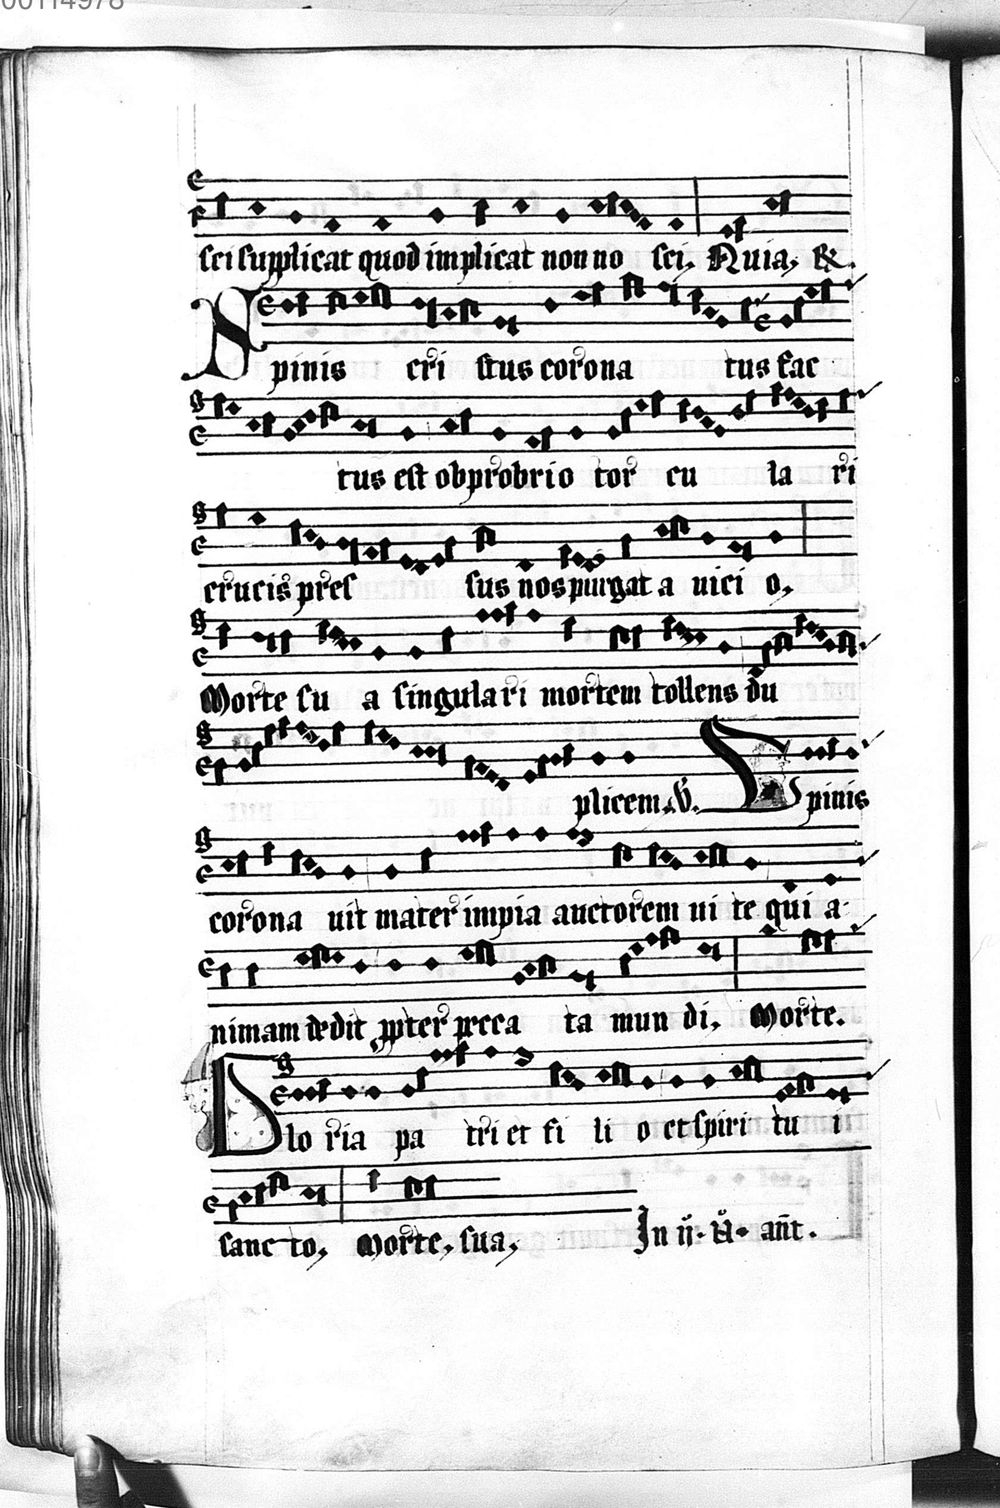 00114978
sei supplicat quod implicat non no sei. Quia, &.
Spinis cri stus corona tus fac
tus est obprobrio tor cu la ri
crucis pres sus nos purgat a uici o,
Morte su a singulari mortem tollens du
plicem. V. Spinis
corona uit mater impia auctorem ui te qui a
nimam dedit ppter pecca ta mun di, Morte.
Glo ria pa tri et fi li o et spiri tu i
sanc to, Morte, sua, In ij. ů. ant̄.